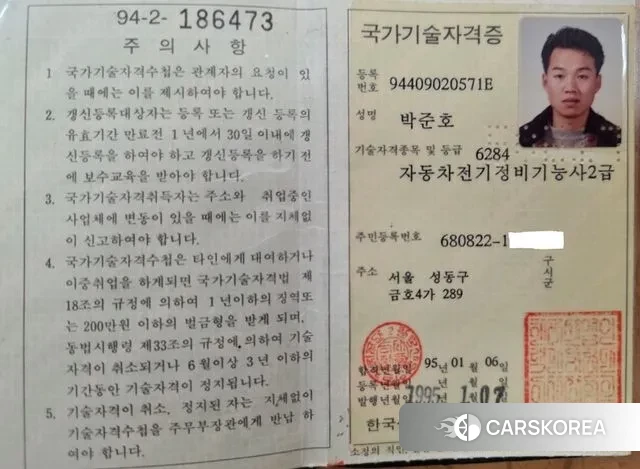 94-2- 186473
주 의 사 항
1 국가기술자격수첩은 관계자의 요청이 있
을 때에는 이를 제시하여야 합니다.
2. 갱신등록대상자는 등록 또는 갱신 등록의
유효기간 만료전 1년에서 30일 이내에 갱
신등록을 하여야 하고 갱신등록을 하기 전
에 보수교육을 받아야 합니다.
3. 국가기술자격취득자는 주소와 취업중인
사업체에 변동이 있을 때에는 이를 지체없
이 신고하여야 합니다.
4. 국가기술자격수첩은 타인에게 대여하거나
이중취업을 하게되면 국가기술자격법 제
18조의 규정에 의하여 1년이하의 징역또
는 200만원 이하의 벌금형을 받게 되며,
동법시행령 제33조의 규정에 의하여 기술
자격이 취소되거나 6월이상 3년 이하의
기간동안 기술자격이 정지됩니다.
5. 기술자격이 취소, 정지된 자는 지체없이
기술자격수첩을 주무부장관에게 반납 하
여야 합니다.
국가기술자격증
등록
번호 94409020571E
성명 박준호
기술자격종목 및 등급 6284
자동차전기정비기능사2급
주민등록번호 680822-1
주소 서울 성동구
금호4가 289
구시군
합격년월일 95년 01월 06일
등록년월일 년 월 일
발행년월일 1995 1.07
한국
소정의 직
CARSKOREA